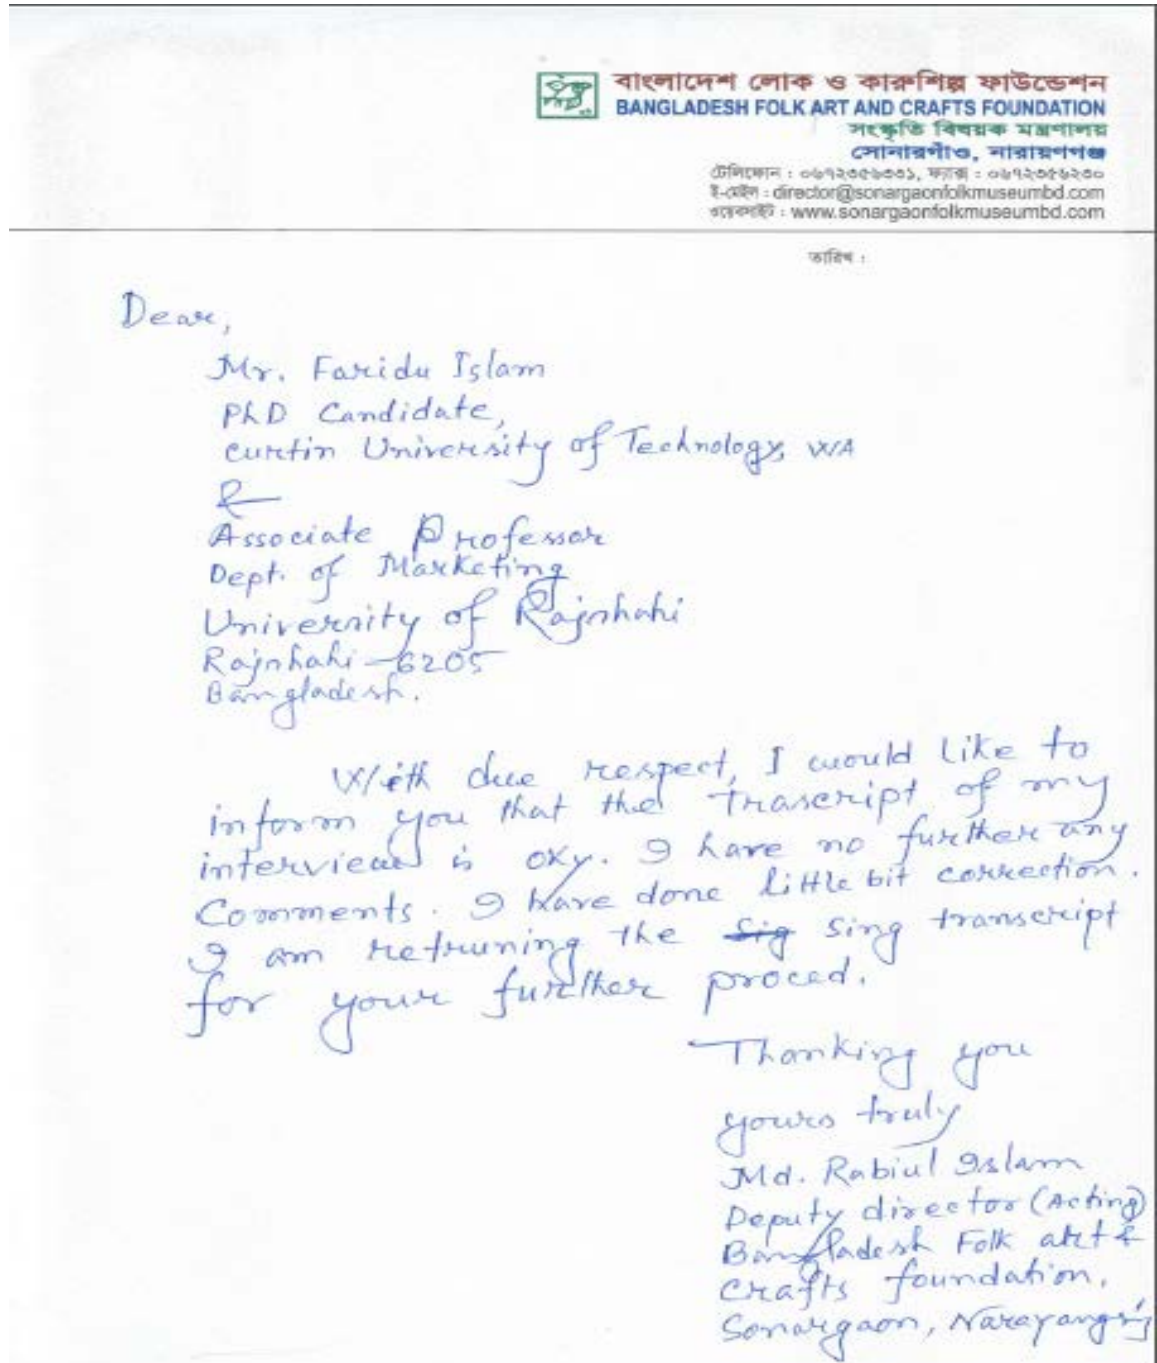 বাংলাদেশ লোক ও কারুশিল্প ফাউন্ডেশন
BANGLADESH FOLK ART AND CRAFTS FOUNDATION
সংস্কৃতি বিষয়ক মন্ত্রণালয়
সোনারগাঁও, নারায়ণগঞ্জ
টেলিফোন : ০৬৭২৩৫৬৩৩১, ফ্যাক্স : ০৬৭২৩৫৬২৩০
ই-মেইল : director@sonargaonfolkmuseumbd.com
ওয়েবসাইট : www.sonargaonfolkmuseumbd.com
তারিখ :
Dear,
Mr. Faridu Islam
PhD Candidate,
Curtin University of Technology, WA
&
Associate Professor
Dept. of Marketing
University of Rajshahi
Rajshahi-6205
Bangladesh.
With due respect, I would like to
inform you that the trascript of my
interview is oky. I have no further any
Comments. I have done little bit correction.
I am retruning the sig sing transcript
for your further proced.
Thanking you
yours truly
Md. Rabiul Islam
Deputy director (Acting)
Bangladesh Folk art &
Crafts foundation,
Sonargaon, Narayangonj